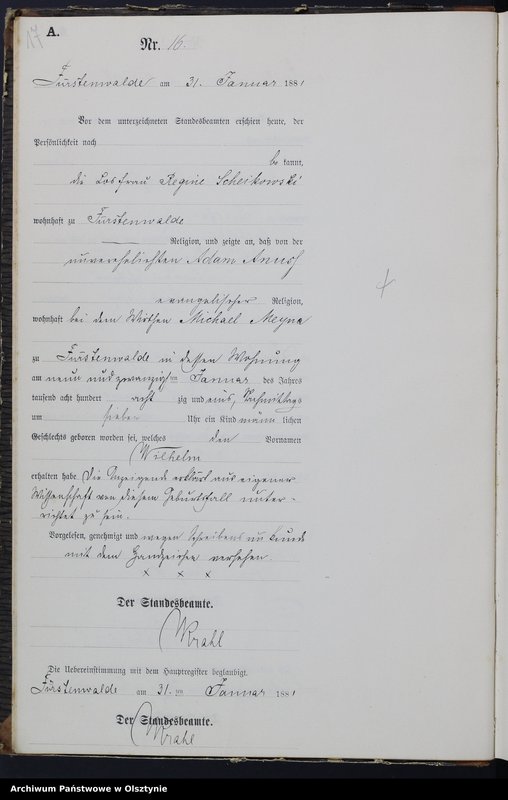 17
A.
Nr. 16.
Fürstenwalde am 31. Januar 1881
Vor dem unterzeichneten Standesbeamten erschien heute, der
Persönlichkeit nach
be kannt,
die Losfrau Regine Scheikowski
wohnhaft zu Fürstenwalde
Religion, und zeigte an, daß von der
unverehelichten Adam
evangelischer Religion,
wohnhaft bei dem Wirthen Michael Meyna
zu Fürstenwalde in dessen Wohnung
am neun und zwanzigsten Januar des Jahres
tausend acht hundert acht zig und eins, Nachmittags
um sieben Uhr ein Kind männ lichen
Geschlechts geboren worden sei, welches den Vornamen
Wilhelm
erhalten habe. Die Anzeigende erklärt aus eigener
Wissenschaft von diesem Geburtsfall unter-
richtet zu sein.
Vorgelesen, genehmigt und wegen Schreibensunkunde
mit dem Handzeichen versehen.
x x x
Der Standesbeamte.
Krahl
Die Uebereinstimmung mit dem Hauptregister beglaubigt.
Fürstenwalde am 31. ten Januar 1881
Der Standesbeamte.
Krahl
Archiwum Państwowe w Olsztynie